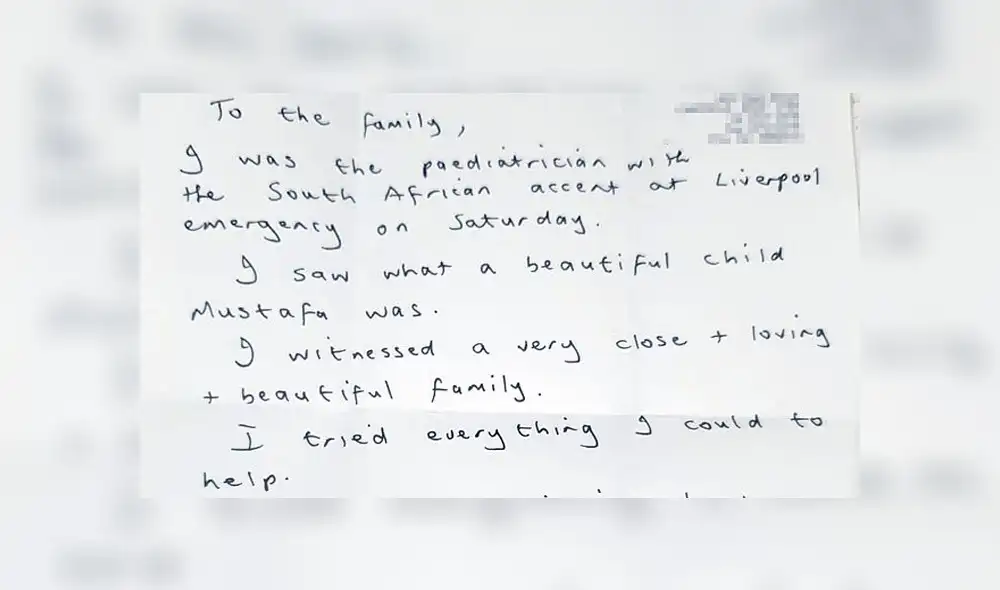 To the family,
I was the paediatrician with
the South African accent at Liverpool
emergency on Saturday.
I saw what a beautiful child
Mustafa was.
I witnessed a very close + loving
+ beautiful family.
I tried everything I could to
help.